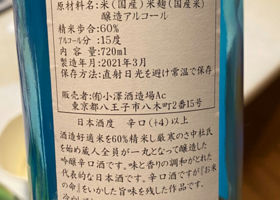 原材料名:米(国産)米麹(国産米)
醸造アルコール
精米歩合:60%
アルコール分:15度
内容量:720ml
製造年月:2021年3月
保存方法:直射日光を避け常温で保存
販売者:㈲小澤酒造場Ac
東京都八王子市八木町2番15号
日本酒度 辛口(+4)以上
酒造好適米を60%精米し厳寒のさ中杜氏
を始め蔵人全員が一丸となって醸造した
吟醸辛口酒です。味と香りの調和がとれた
代表的な日本酒です。辛口酒ですが『お米
の命』をいかした旨味を残した作品です。